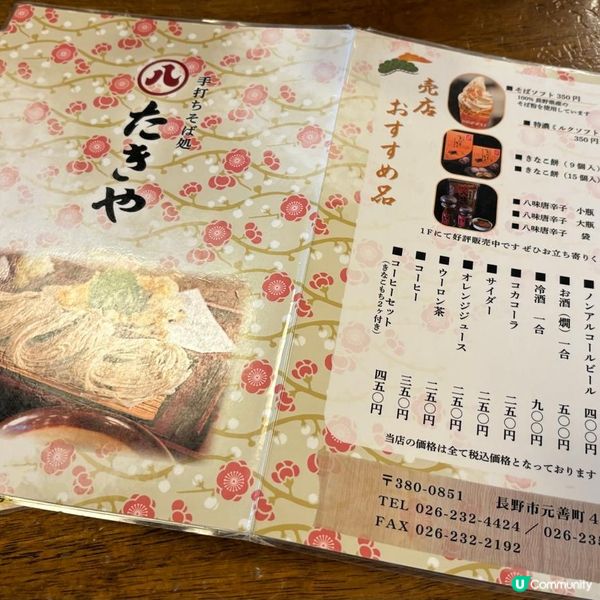 八
手打ちそば処
たきや
売店
おすすめ品
■そばソフト 350円
100%長野県産の
そば粉を使用しています
■特濃ミルクソフト
350円
■きなこ餅(9個入)
■きなこ餅(15個入)
■八味唐辛子 小瓶
■八味唐辛子 大瓶
■八味唐辛子 袋
1Fにて好評販売中です ぜひお立ち寄りく
■ノンアルコールビール 四〇〇円
■お酒(燗)一合 五〇〇円
■冷酒 一合 九〇〇円
■コカコーラ 二五〇円
■サイダー 二五〇円
■オレンジジュース 二五〇円
■ウーロン茶 二五〇円
■コーヒー 三五〇円
■コーヒーセット 四五〇円
(きなこもち2ヶ付き)
当店の価格は全て税込価格となっております
〒380-0851 長野市元善町4
TEL 026-232-4424/026-235
FAX 026-232-2192
U Community